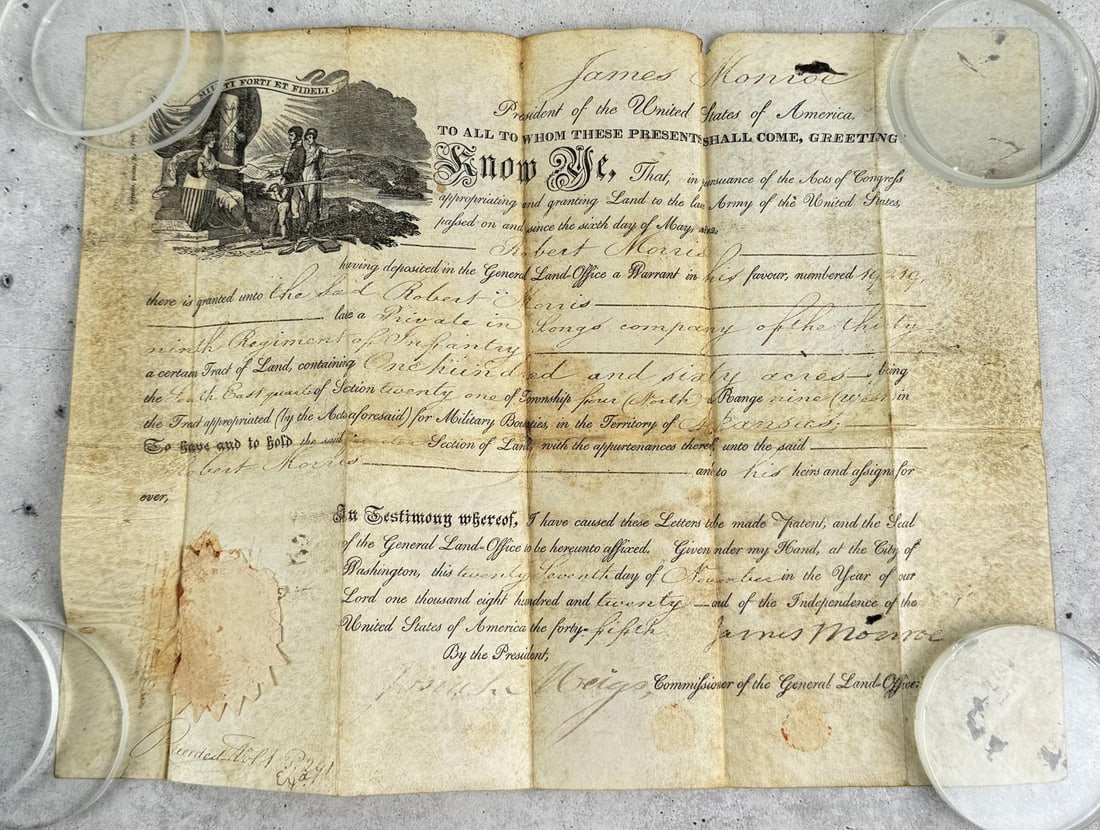 MILITI FORTI ET FIDELI.
James Monroe
President of the United States of America.
TO ALL TO WHOM THESE PRESENTS SHALL COME, GREETING
Know Ye, That, in pursuance of the Acts of Congress
appropriating and granting Land to the late Army of the United States,
passed on and since the sixth day of May,
Robert Morris
having deposited in the General Land-Office a Warrant in his favour, numbered
there is granted unto the said Robert Morris
late a Private in Longs company of the thirty
ninth Regiment of Infantry
a certain Tract of Land, containing One hundred and sixty acres being
the South East quarter of Section twenty one of Township four (North) Range nine (West) in
the Tract appropriated (by the Acts aforesaid) for Military Bounties, in the Territory of Arkansas;
To have and to hold the said quarter Section of Land, with the appurtenances thereof, unto the said
Robert Morris and to his heirs and assigns for
ever,
In Testimony whereof, I have caused these Letters to be made Patent, and the Seal
of the General Land-Office to be hereunto affixed. Given under my Hand, at the City of
Washington, this twenty Seventh day of November in the Year of our
Lord one thousand eight hundred and twenty and of the Independence of the
United States of America the forty-fifth James Monroe
By the President,
Josiah Meigs, Commissioner of the General Land-Office.
Recorded Vol 1
Exd.